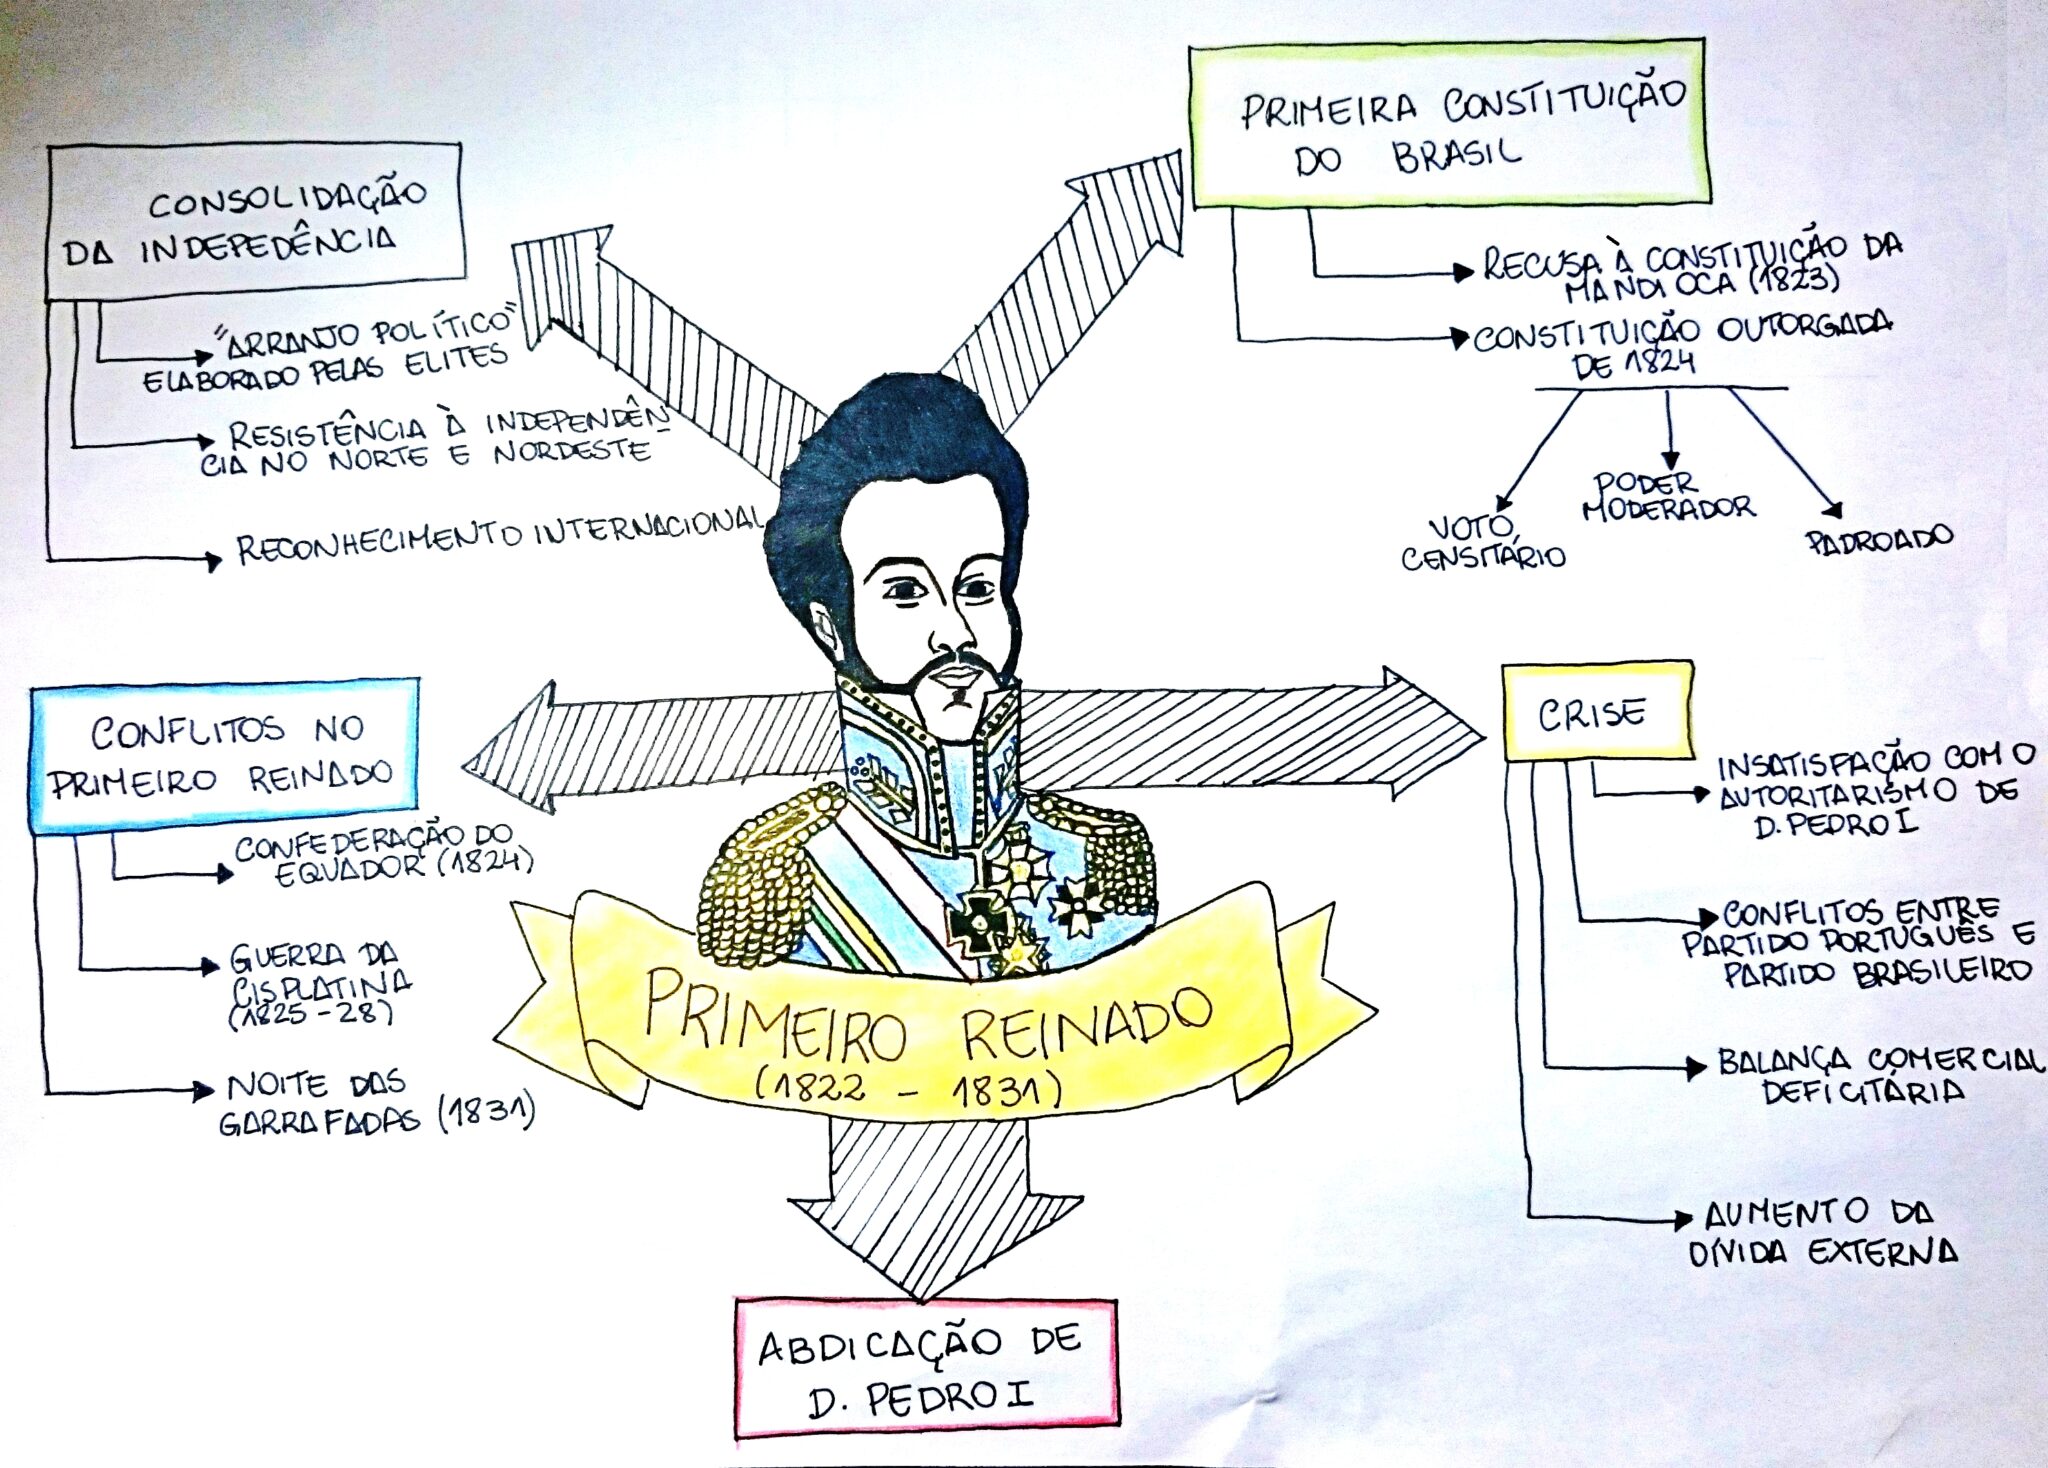 CONSOLIDAÇÃO
DA INDEPEDÊNCIA
"ARRANJO POLÍTICO"
ELABORADO PELAS ELITES
RESISTÊNCIA À INDEPENDÊN
CIA NO NORTE E NORDESTE
RECONHECIMENTO INTERNACIONAL
PRIMEIRA CONSTITUIÇÃO
DO BRASIL
RECUSA À CONSTITUIÇÃO DA
MANDIOCA (1823)
CONSTITUIÇÃO OUTORGADA
DE 1824
VOTO
CENSITÁRIO
PODER
MODERADOR
PADROADO
CONFLITOS NO
PRIMEIRO REINADO
CONFEDERAÇÃO DO
EQUADOR (1824)
GUERRA DA
CISPLATINA
(1825-28)
NOITE DAS
GARRAFADAS (1831)
CRISE
INSATISFAÇÃO COM O
AUTORITARISMO DE
D. PEDRO I
CONFLITOS ENTRE
PARTIDO PORTUGUÊS E
PARTIDO BRASILEIRO
BALANÇA COMERCIAL
DEFICITÁRIA
AUMENTO DA
DÍVIDA EXTERNA
PRIMEIRO REINADO
(1822 - 1831)
ABDICAÇÃO DE
D. PEDRO I